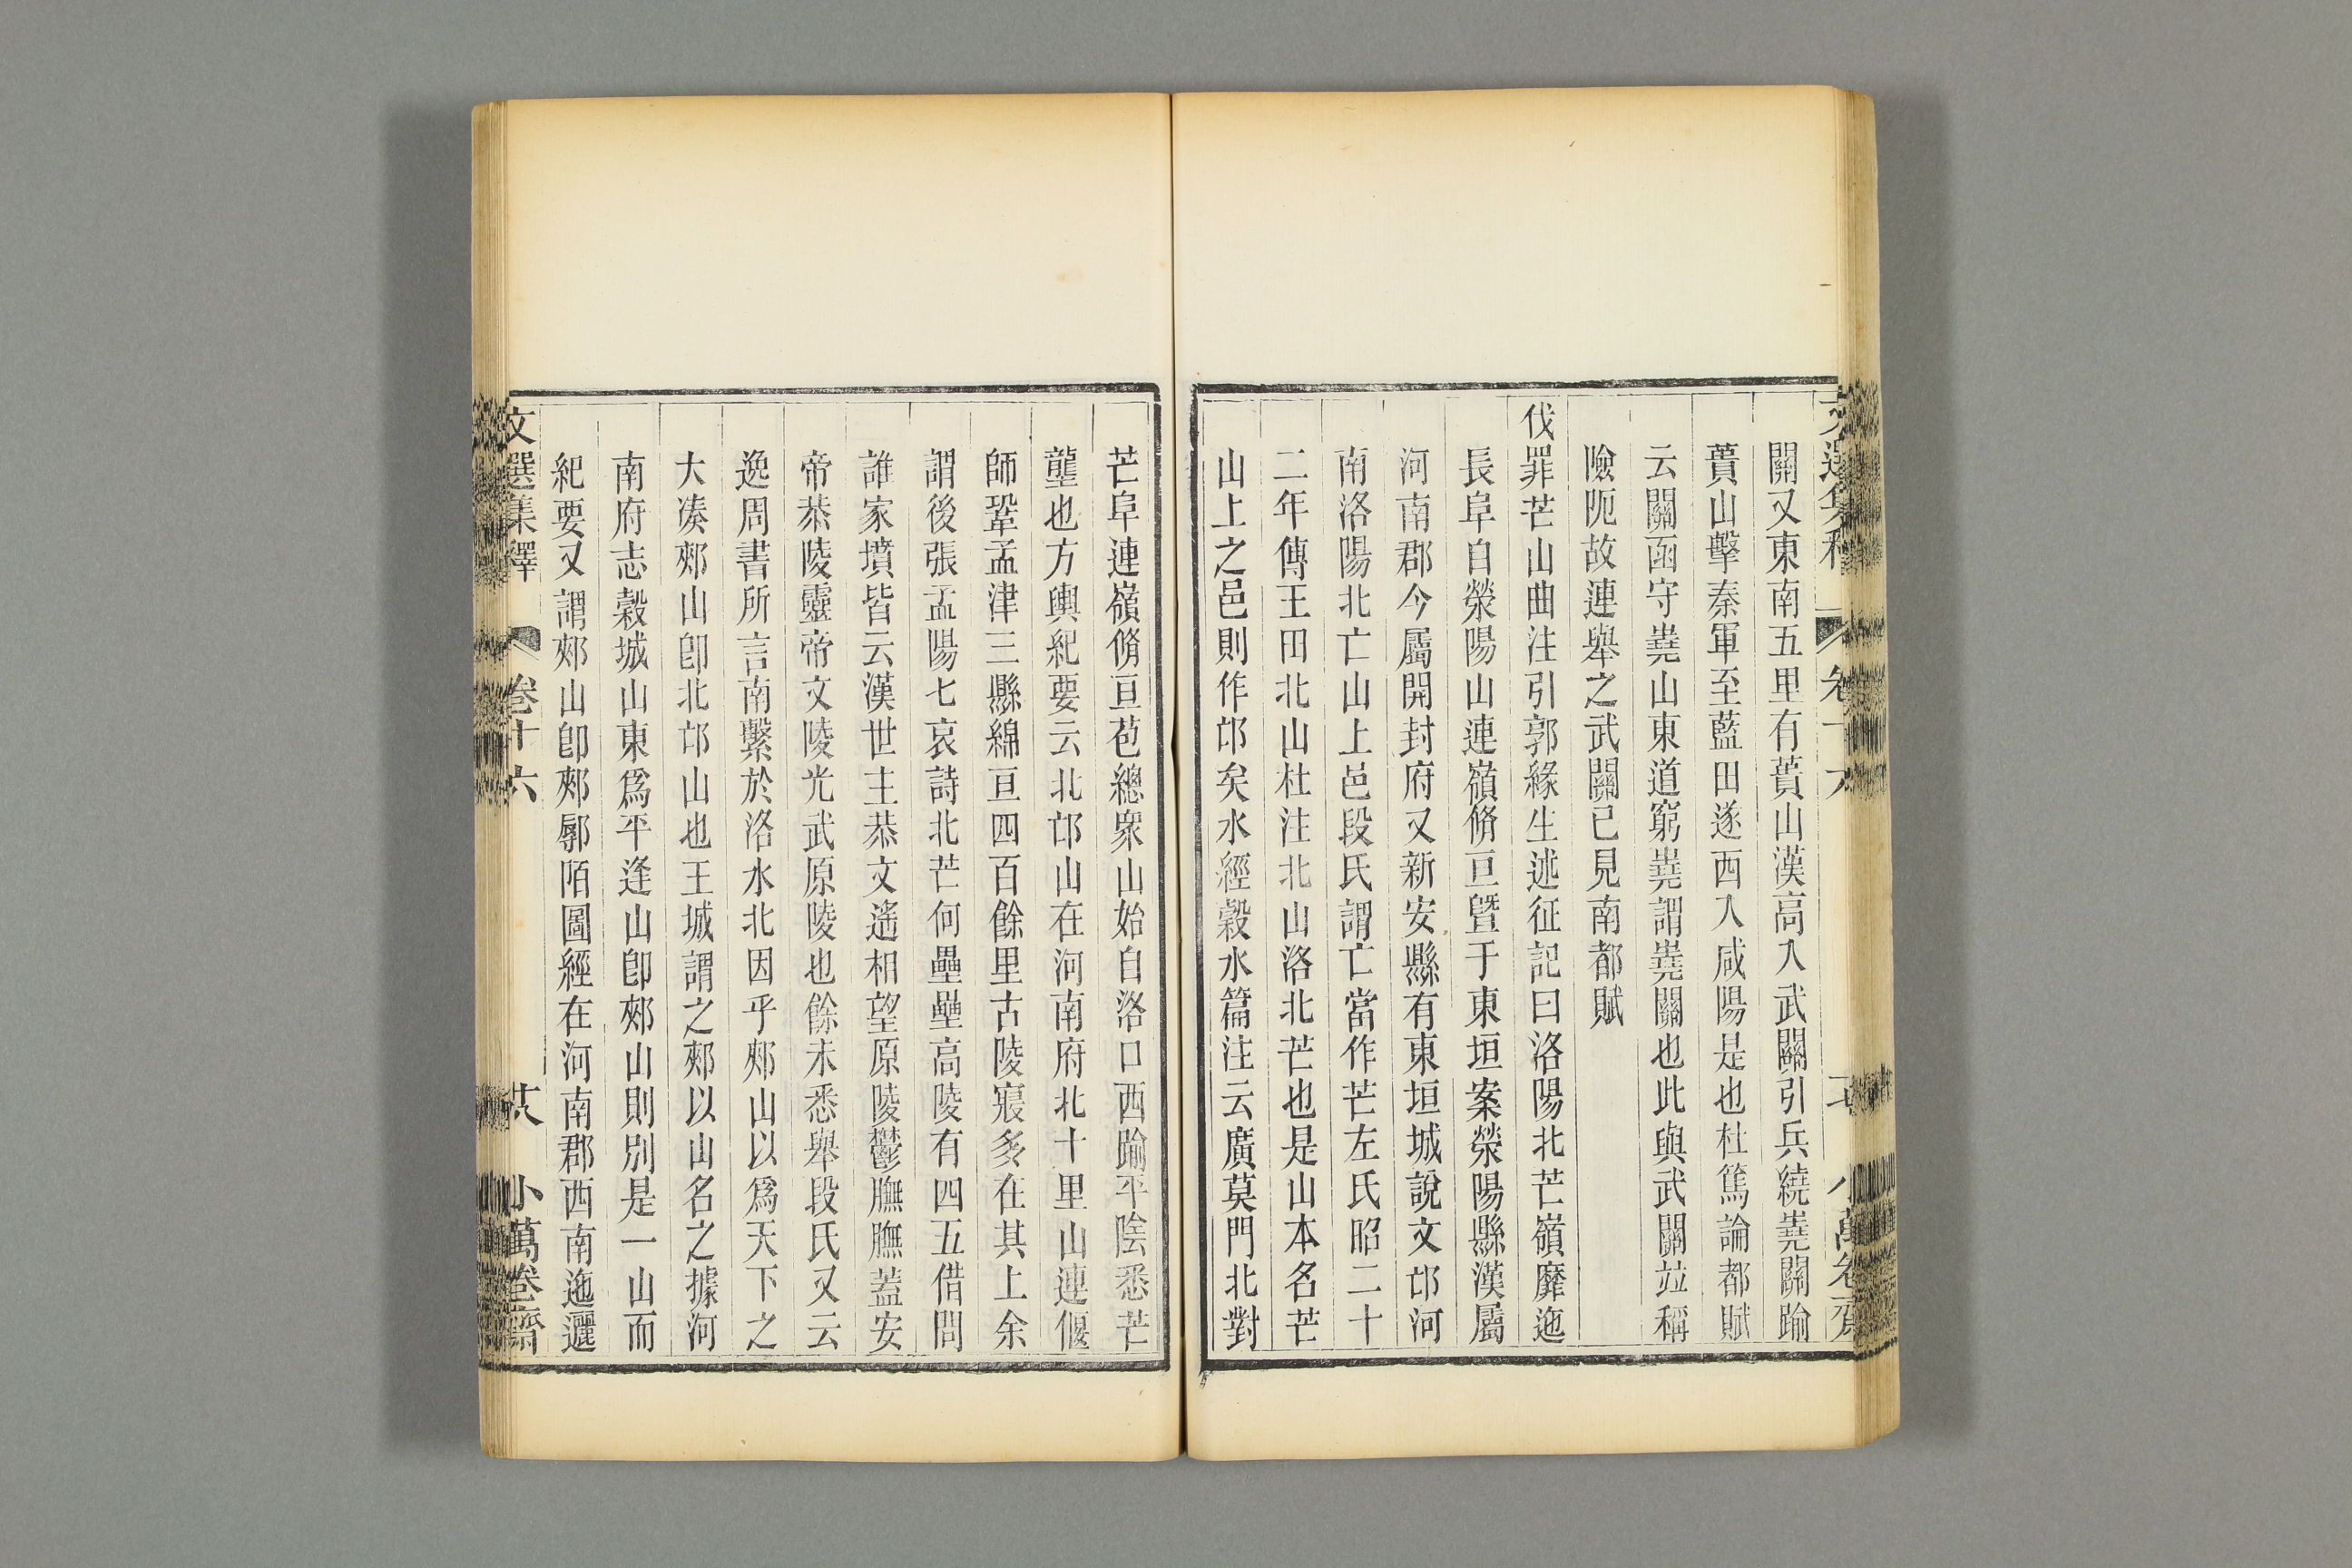 關又東南五里有蕢山漢高入武關引兵繞嶤關踰
蕢山擊秦軍至藍田遂西入咸陽是也杜篤論都賦
云關函守嶤山東道窮嶤謂嶤關也此與武關竝稱
險阨故連舉之武關已見南都賦
伐罪芒山曲注引郭緣生述征記曰洛陽北芒嶺靡迤
長阜自滎陽山連嶺脩亘曁于東垣案滎陽縣漢屬
河南郡今屬開封府又新安縣有東垣城說文邙河
南洛陽北亡山上邑段氏謂亡當作芒左氏昭二十
二年傳王田北山杜注北山洛北芒也是山本名芒
山上之邑則作邙矣水經穀水篇注云廣莫門北對
芒阜連嶺脩亘苞總衆山始自洛口西踰平陰悉芒
壟也方輿紀要云北邙山在河南府北十里山連偃
師鞏孟津三縣綿亘四百餘里古陵寢多在其上余
謂後張孟陽七哀詩北芒何壘壘高陵有四五借問
誰家墳皆云漢世主恭文遙相望原陵鬱膴膴蓋安
帝恭陵靈帝文陵光武原陵也餘未悉舉段氏又云
逸周書所言南繫於洛水北因乎郟山以爲天下之
大湊郟山卽北邙山也王城謂之郟以山名之據河
南府志穀城山東爲平逢山卽郟山則別是一山而
紀要又謂郟山卽郟鄏陌圖經在河南郡西南迤邐
文選集釋 卷十六 廿八 小萬卷齋